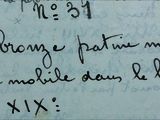 Nº 31
bronze patine m
e mobile dans le b
XIXe